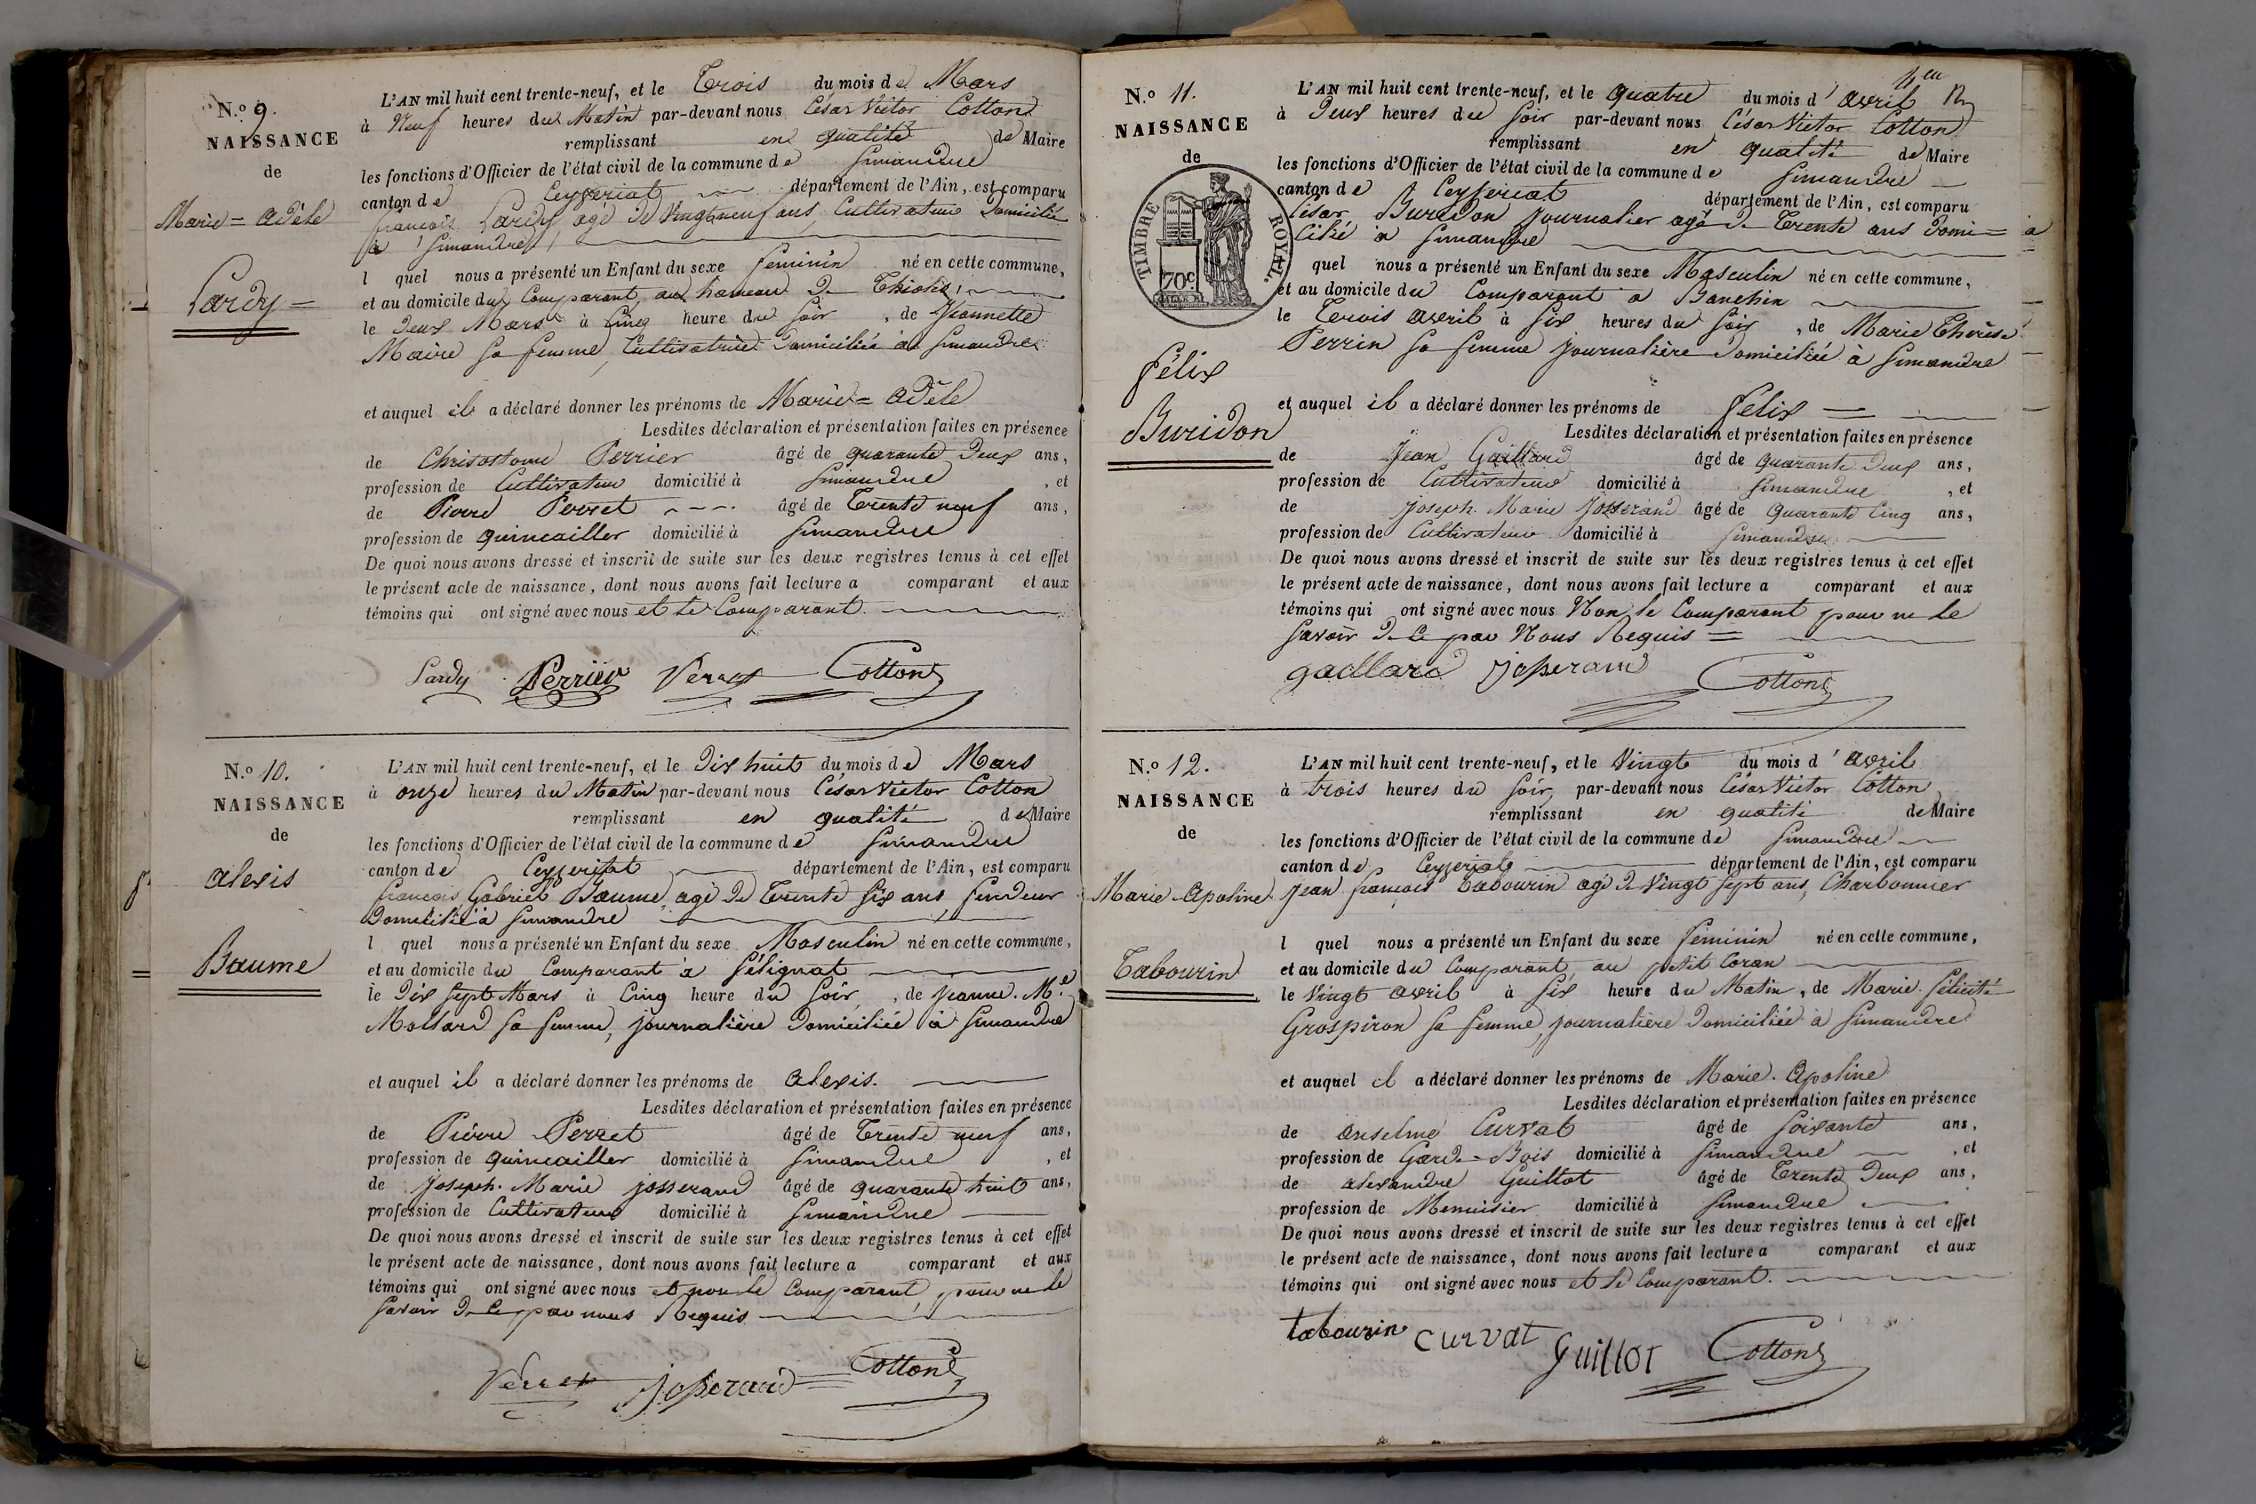 N.o 9.
NAISSANCE
de
Marie = Adèle
Lardy =
L'AN mil huit cent trente-neuf, et le Trois du mois de Mars
à Neuf heures du Matin par-devant nous César Victor Cotton
remplissant en qualité de Maire
les fonctions d'Officier de l'état civil de la commune de Simandre
canton de Ceyzeriat département de l'Ain, est comparu
françois Lardy agé de Vingtneuf ans, Cultivateur Domicilié
à Simandre,
l quel nous a présenté un Enfant du sexe feminin né en cette commune,
et au domicile du Comparant, au hameau de
le Deux Mars à Cinq heure du Soir, de Jeannette
Maire sa femme, Cultivatrice Domiciliée à Simandre
et auquel il a déclaré donner les prénoms de Marie = Adèle
Lesdites déclaration et présentation faites en présence
de Chrisostome Perrier âgé de quarante Deux ans,
profession de Cultivateur domicilié à Simandre, et
de Pierre Perret âgé de Trente neuf ans,
profession de quincailler domicilié à Simandre
De quoi nous avons dressé et inscrit de suite sur les deux registres tenus à cet effet
le présent acte de naissance, dont nous avons fait lecture a comparant et aux
témoins qui ont signé avec nous et le Comparant.
Lardy Perrier Perret Cotton
N.o 10.
NAISSANCE
de
Alexis
Baume
L'AN mil huit cent trente-neuf, et le Dix huit du mois de Mars
à onze heures du Matin par-devant nous César Victor Cotton
remplissant en qualité de Maire
les fonctions d'Officier de l'état civil de la commune de Simandre
canton de Ceyzeriat département de l'Ain, est comparu
françois Gabriel Baume, agé de Trente Six ans, fendeur
Domicilié à Simandre
l quel nous a présenté un Enfant du sexe Masculin né en cette commune,
et au domicile du Comparant à Sélignat
le Dix Sept Mars à Cinq heure du Soir, de Jeanne. M.e
Mollard sa femme, journalière Domiciliée à Simandre
et auquel il a déclaré donner les prénoms de Alexis.
Lesdites déclaration et présentation faites en présence
de Pierre Perret âgé de Trente neuf ans,
profession de quincailler domicilié à Simandre, et
de Joseph. Marie Josserand âgé de quarante huit ans,
profession de Cultivateur domicilié à Simandre
De quoi nous avons dressé et inscrit de suite sur les deux registres tenus à cet effet
le présent acte de naissance, dont nous avons fait lecture a comparant et aux
témoins qui ont signé avec nous et non le Comparant, pour ne le
Savoir de ce par nous Requis
Perret Josserand Cotton
N.o 11.
NAISSANCE
de
TIMBRE ROYAL.
70c
félix
Buridon
L'AN mil huit cent trente-neuf, et le quatre du mois d'avril
à Deux heures du Soir par-devant nous César Victor Cotton
remplissant en qualité de Maire
les fonctions d'Officier de l'état civil de la commune de Simandre
canton de Ceyzeriat département de l'Ain, est comparu
César Buridon Journalier agé de Trente ans Domi=
cilié à Simandre
quel nous a présenté un Enfant du sexe Masculin né en cette commune,
et au domicile du Comparant à Banchin
le Trois avril à Six heures du Soir, de Marie Thérèse
Perrin sa femme journalière Domiciliée à Simandre
et auquel il a déclaré donner les prénoms de félix
Lesdites déclaration et présentation faites en présence
de Jean Gaillard âgé de quarante Deux ans,
profession de Cultivateur domicilié à Simandre, et
de Joseph. Marie Josserand âgé de Quarante Cinq ans,
profession de Cultivateur domicilié à Simandre
De quoi nous avons dressé et inscrit de suite sur les deux registres tenus à cet effet
le présent acte de naissance, dont nous avons fait lecture a comparant et aux
témoins qui ont signé avec nous Non le Comparant pour ne le
Savoir de ce par Nous Requis =
gaillard Josserand Cotton
N.o 12.
NAISSANCE
de
Marie Apoline
Tabourin
L'AN mil huit cent trente-neuf, et le Vingt du mois d'avril
à trois heures du Soir, par-devant nous César Victor Cotton
remplissant en qualité de Maire
les fonctions d'Officier de l'état civil de la commune de Simandre
canton de Ceyzeriat département de l'Ain, est comparu
Jean françois Tabourin agé de Vingt Sept ans, Charbonnier
l quel nous a présenté un Enfant du sexe feminin né en cette commune,
et au domicile du Comparant, au petit Coran
le Vingt avril à Six heure du Matin, de Marie. félicité
Grospiron sa femme, journalière Domiciliée à Simandre
et auquel il a déclaré donner les prénoms de Marie. Apoline
Lesdites déclaration et présentation faites en présence
de Anselme Curvat âgé de Soixante ans,
profession de Garde=Bois domicilié à Simandre, et
de Alexandre Guillot âgé de Trente Deux ans,
profession de Menuisier domicilié à Simandre
De quoi nous avons dressé et inscrit de suite sur les deux registres tenus à cet effet
le présent acte de naissance, dont nous avons fait lecture a comparant et aux
témoins qui ont signé avec nous et le Comparant.
tabourin Curvat Guillot Cotton